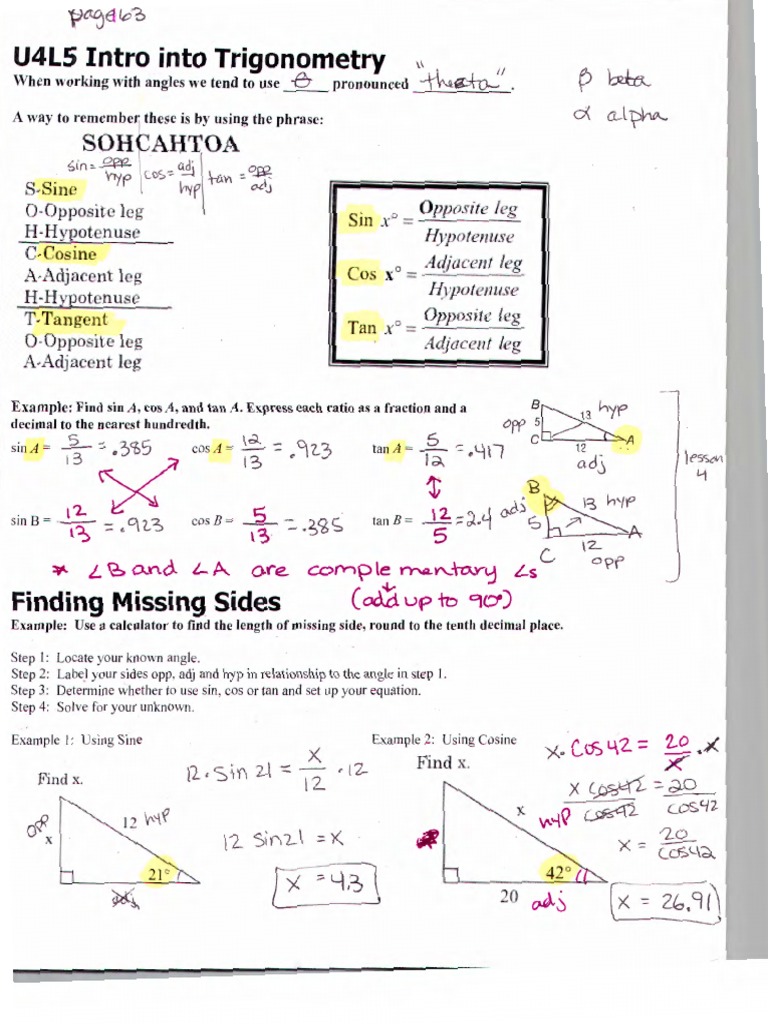 page 163
U4L5 Intro into Trigonometry
When working with angles we tend to use θ pronounced "theta".
β beta
α alpha
A way to remember these is by using the phrase:
SOHCAHTOA
sin = opp/hyp | cos = adj/hyp | tan = opp/adj
S-Sine
O-Opposite leg
H-Hypotenuse
C-Cosine
A-Adjacent leg
H-Hypotenuse
T-Tangent
O-Opposite leg
A-Adjacent leg
Sin x° = Opposite leg / Hypotenuse
Cos x° = Adjacent leg / Hypotenuse
Tan x° = Opposite leg / Adjacent leg
Example: Find sin A, cos A, and tan A. Express each ratio as a fraction and a
decimal to the nearest hundredth.
sin A = 5/13 = .385 cos A = 12/13 = .923 tan A = 5/12 = .417
B 13 hyp
opp 5
C 12 A
adj
lesson
4
sin B = 12/13 = .923 cos B = 5/13 = .385 tan B = 12/5 = 2.4
B 13 hyp
adj 5
A
C 12
opp
* ∠B and ∠A are complementary ∠s
(add up to 90°)
Finding Missing Sides
Example: Use a calculator to find the length of missing side, round to the tenth decimal place.
Step 1: Locate your known angle.
Step 2: Label your sides opp, adj and hyp in relationship to the angle in step 1.
Step 3: Determine whether to use sin, cos or tan and set up your equation.
Step 4: Solve for your unknown.
Example 1: Using Sine
Find x.
opp
x
12 hyp
21°
adj
12 · sin 21 = x/12 · 12
12 sin21 = x
x = 4.3
Example 2: Using Cosine
Find x.
x
hyp
42°
20 adj
x · Cos 42 = 20/x · x
x cos42/cos42 = 20/cos42
x = 20/cos42
x = 26.91